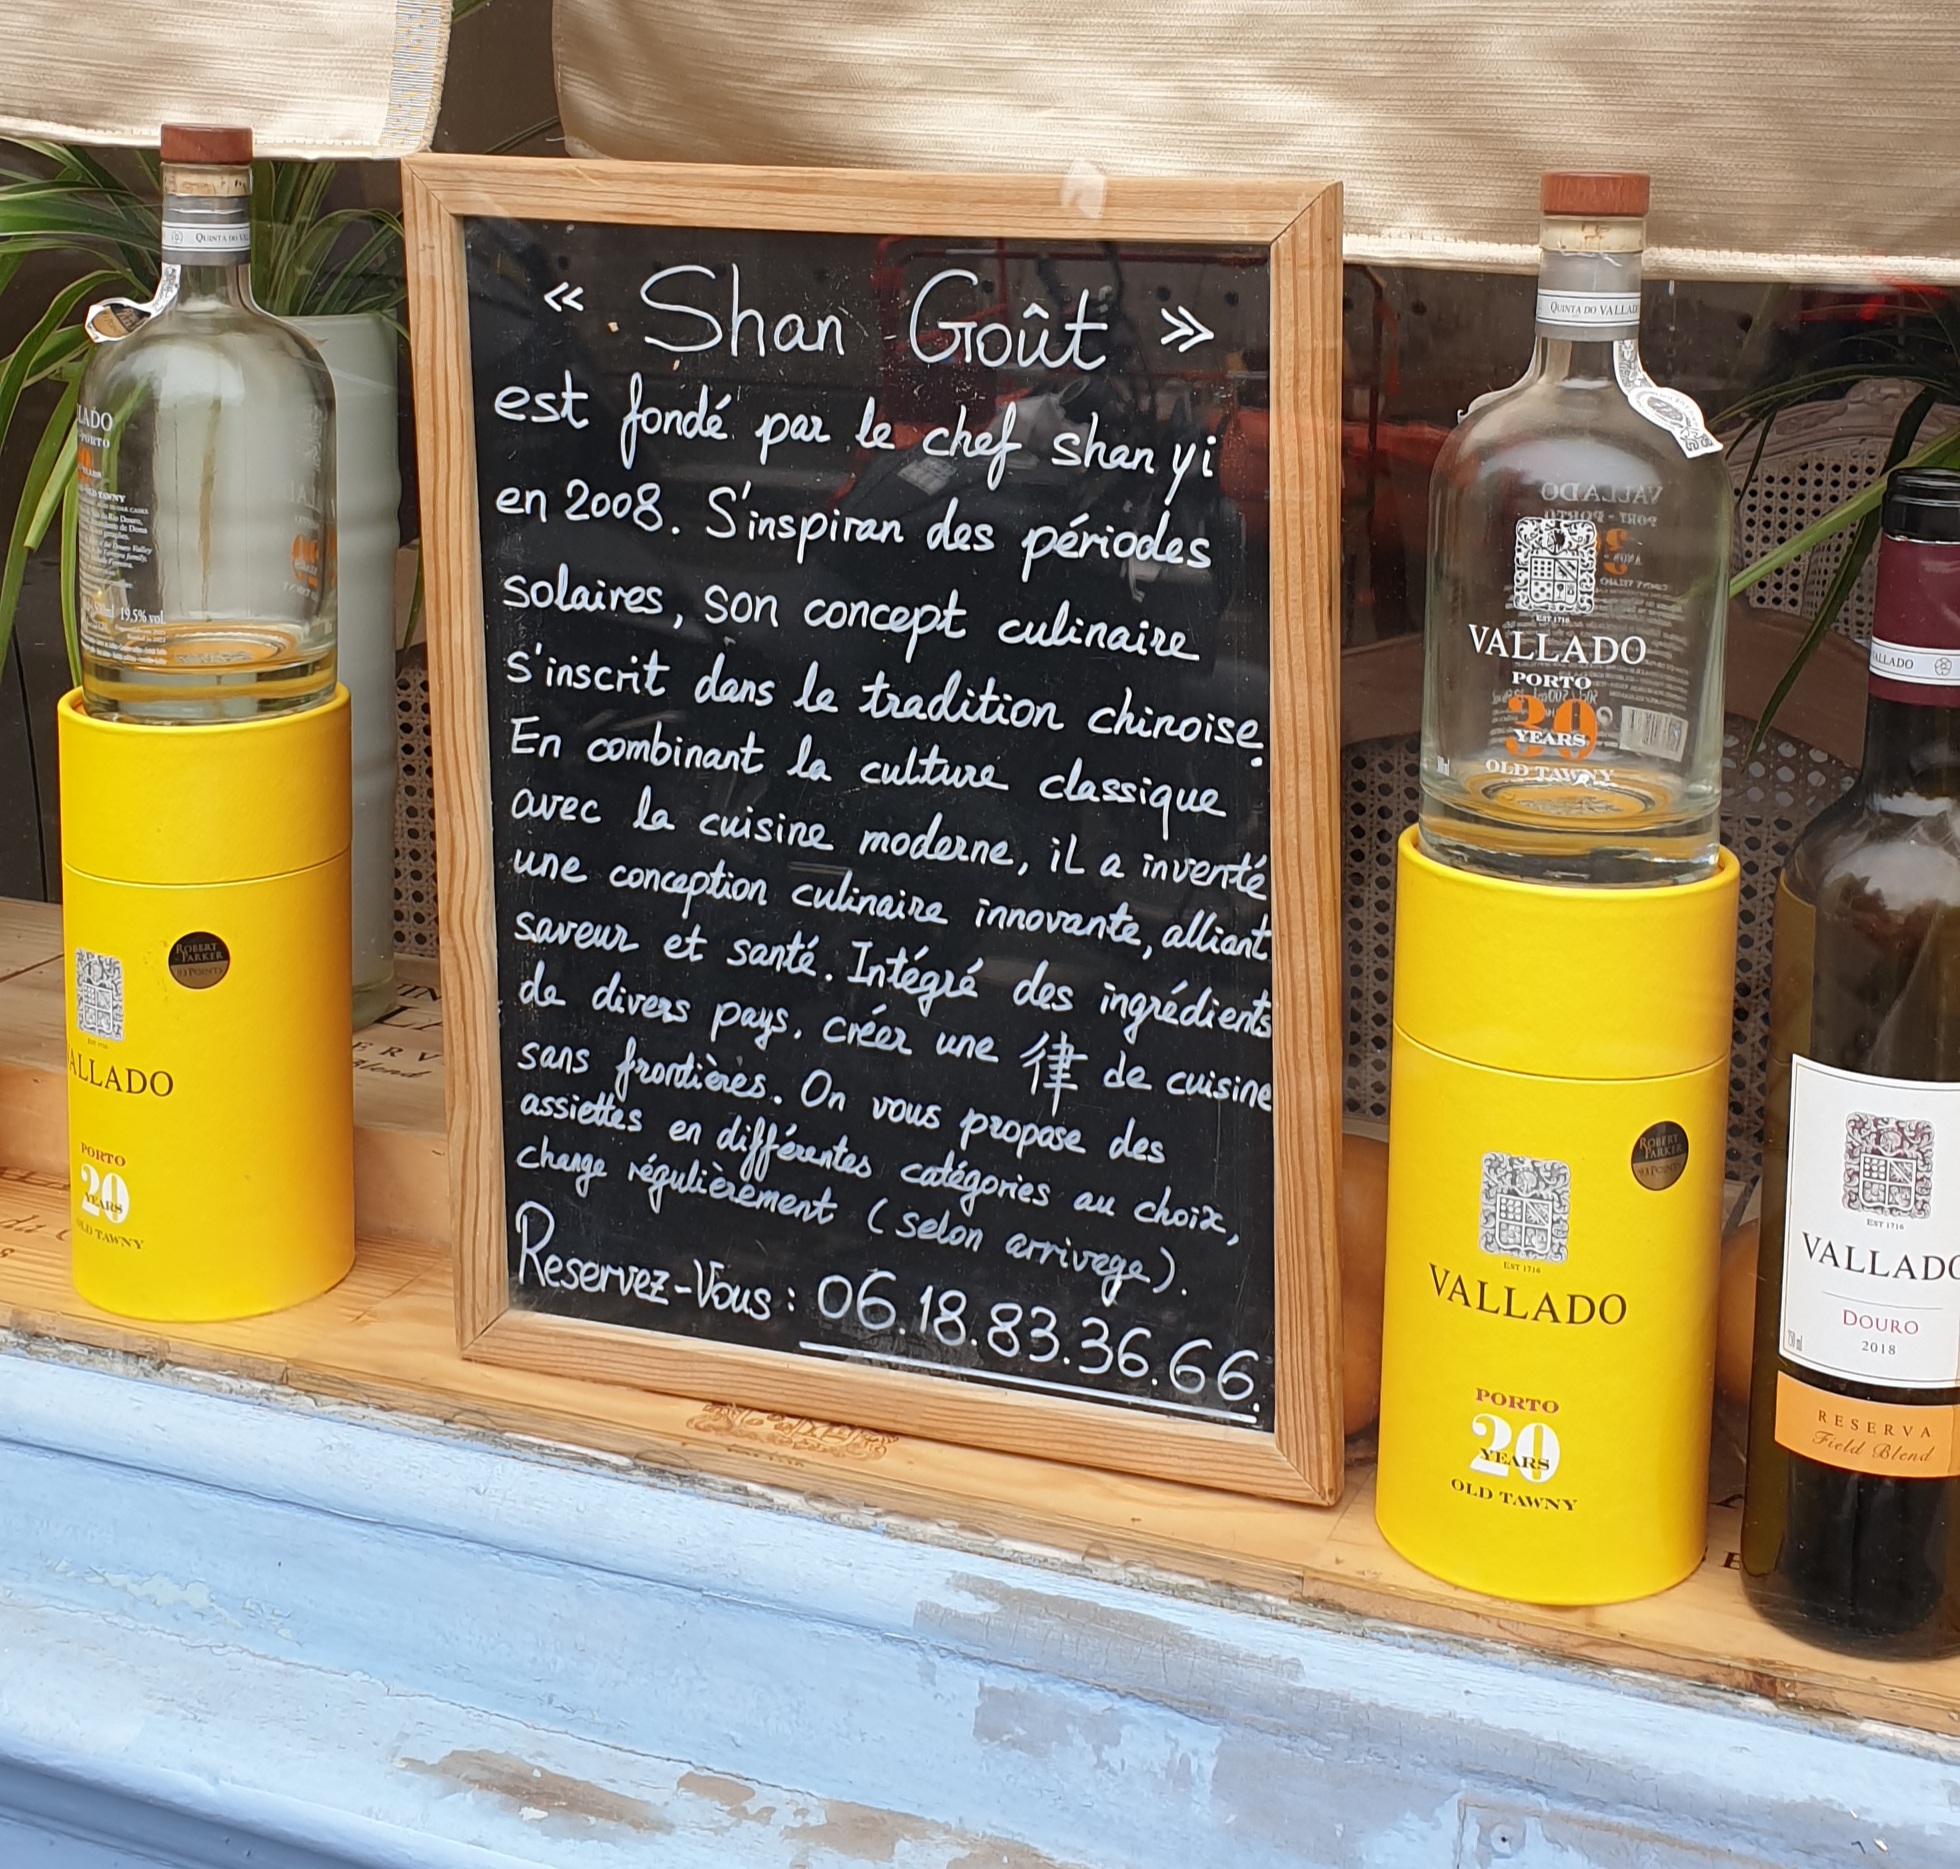 « Shan Goût »
est fondé par le chef shan yi
en 2008. S'inspiran des périodes
solaires, son concept culinaire
s'inscrit dans le tradition chinoise.
En combinant la culture classique
avec la cuisine moderne, il a inventé
une conception culinaire innovante, alliant
saveur et santé. Intégré des ingrédients
de divers pays, créer une 律 de cuisine
sans frontières. On vous propose des
assiettes en différentes catégories au choix,
change régulièrement (selon arrivege).
Reservez-Vous : 06.18.83.36.66.
QUINTA DO VAL
LADO
PORTO
OLD TAWNY
19.5% vol.
ROBERT
PARKER
93 POINTS
EST 1716
ALLADO
PORTO
20
YEARS
OLD TAWNY
QUINTA DO VALLAD
EST 1716
VALLADO
PORTO
YEARS
OLD TAWNY
ROBERT
PARKER
93 POINTS
EST 1716
VALLADO
PORTO
20
YEARS
OLD TAWNY
VALLADO
EST 1716
VALLADO
DOURO
2018
750 ml
RESERVA
Field Blend